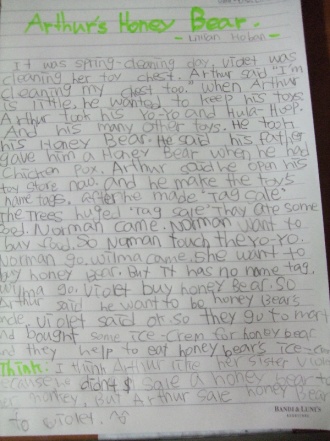 Arthur's Honey Bear.
- Lillian Hoban -
It was spring-cleaning day. Violet was
cleaning her toy chest. Arthur said "I'm
cleaning my chest too. when Arthur
is little, he wanted to keep his toys
Arthur took his Yo-Yo and Hula-Hoop.
And his many other toys. He took
his Honey Bear. He said his father
gave him a Honey Bear when he had
Chicken Pox. Arthur said he open his
toy store now. and he make the toys
name tags. after he made "Tag Sale"
the Trees huged "Tag sale" They ate some
food. Norman came. Norman want to
buy food. So Norman touch the Yo-Yo.
Norman go. Wilma came. She want to
buy honey Bear. But It has no name tag.
Wilma go. Violet buy honey Bear. So
Arthur said he want to be honey Bear's
uncle. Violet said ok. So they go to
and bought some Ice-Crem for honey bear
and they help to eat honey bear's ice-
Think. I think Arthur like her sister Violet
because he didn't sale a honey bear to
But Arthur sale honey Bear
to Violet.
HANDS & LUNCS